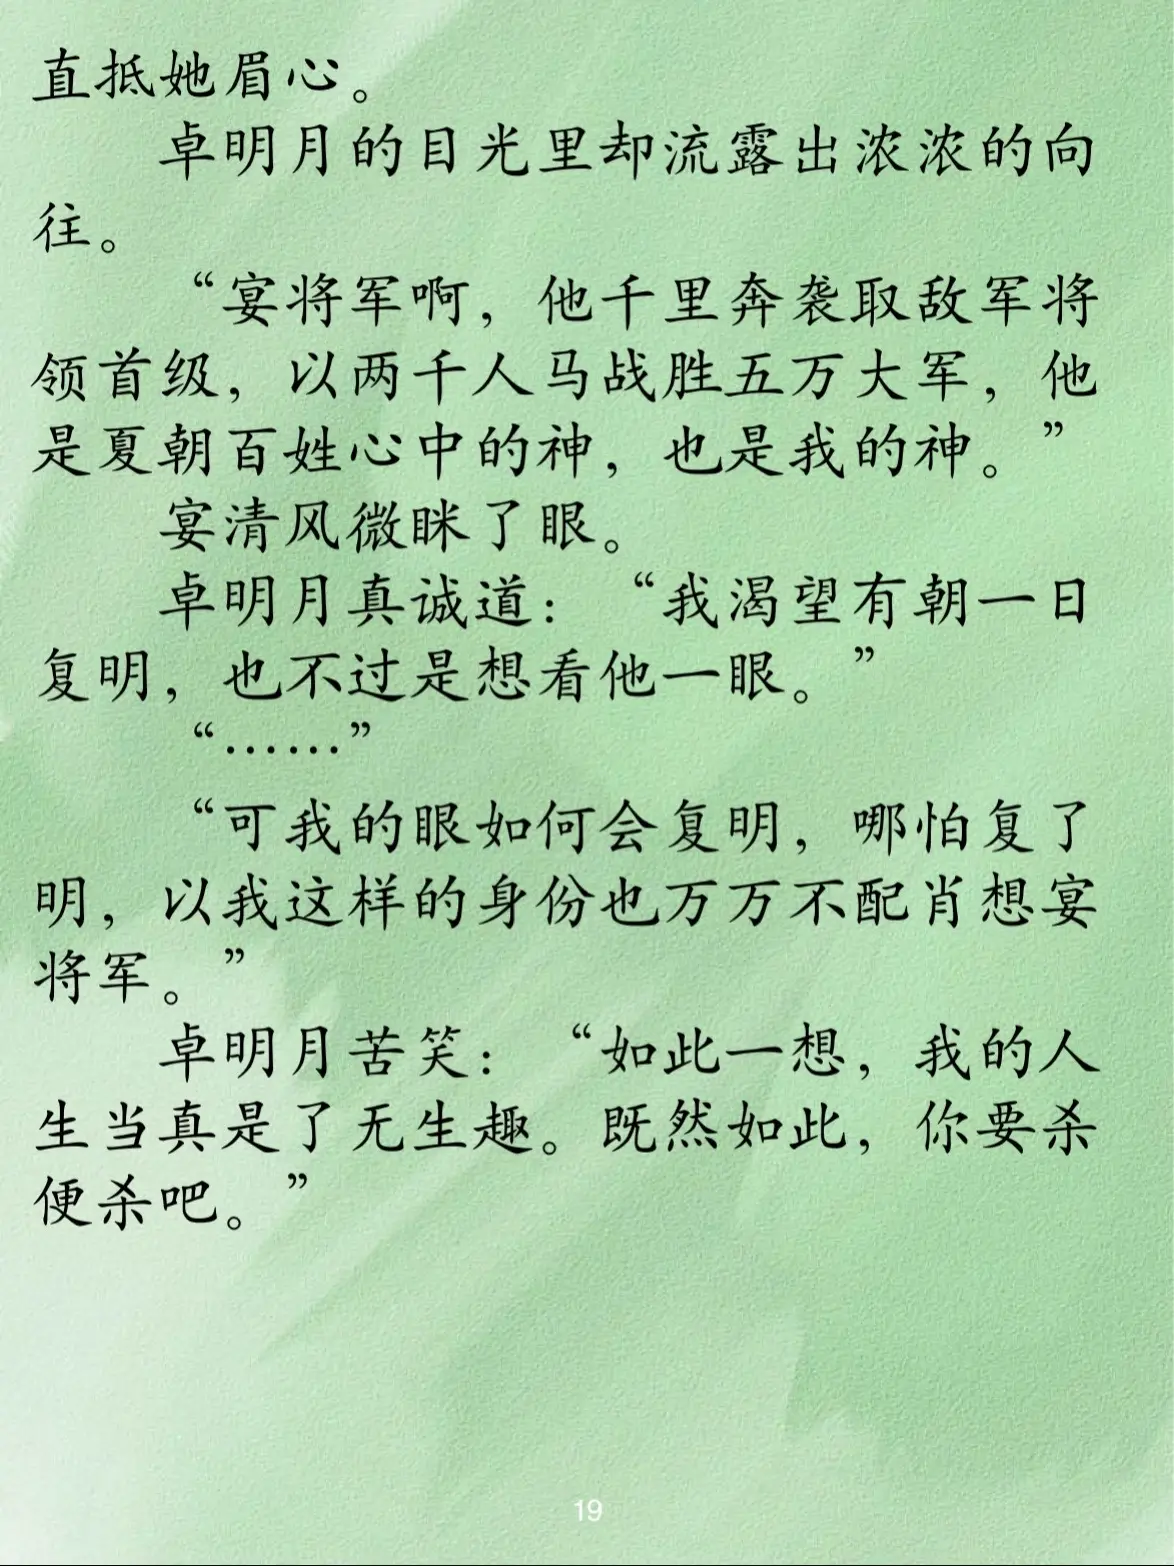 直抵她眉心。
卓明月的目光里却流露出浓浓的向
往。
“宴将军啊，他千里奔袭取敌军将
领首级，以两千人马战胜五万大军，他
是夏朝百姓心中的神，也是我的神。”
宴清风微眯了眼。
卓明月真诚道：“我渴望有朝一日
复明，也不过是想看他一眼。”
“……”
“可我的眼如何会复明，哪怕复了
明，以我这样的身份也万万不配肖想宴
将军。”
卓明月苦笑：“如此一想，我的人
生当真是了无生趣。既然如此，你要杀
便杀吧。”
19